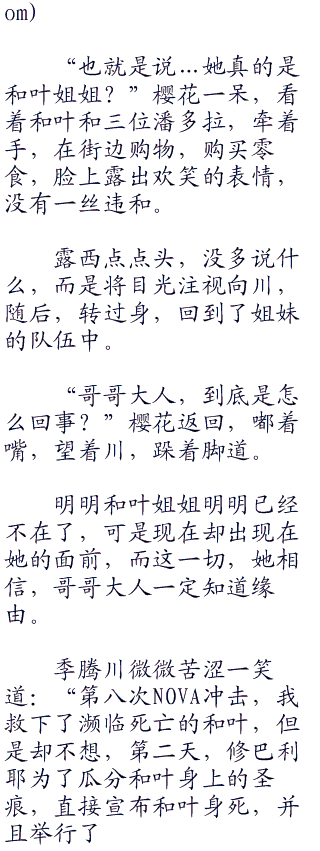 om)
“也就是说...她真的是
和叶姐姐？”樱花一呆，看
着和叶和三位潘多拉，牵着
手，在街边购物，购买零
食，脸上露出欢笑的表情，
没有一丝违和。
露西点点头，没多说什
么，而是将目光注视向川，
随后，转过身，回到了姐妹
的队伍中。
“哥哥大人，到底是怎
么回事？”樱花返回，嘟着
嘴，望着川，跺着脚道。
明明和叶姐姐明明已经
不在了，可是现在却出现在
她的面前，而这一切，她相
信，哥哥大人一定知道缘
由。
季腾川微微苦涩一笑
道：“第八次NOVA冲击，我
救下了濒临死亡的和叶，但
是却不想，第二天，修巴利
耶为了瓜分和叶身上的圣
痕，直接宣布和叶身死，并
且举行了